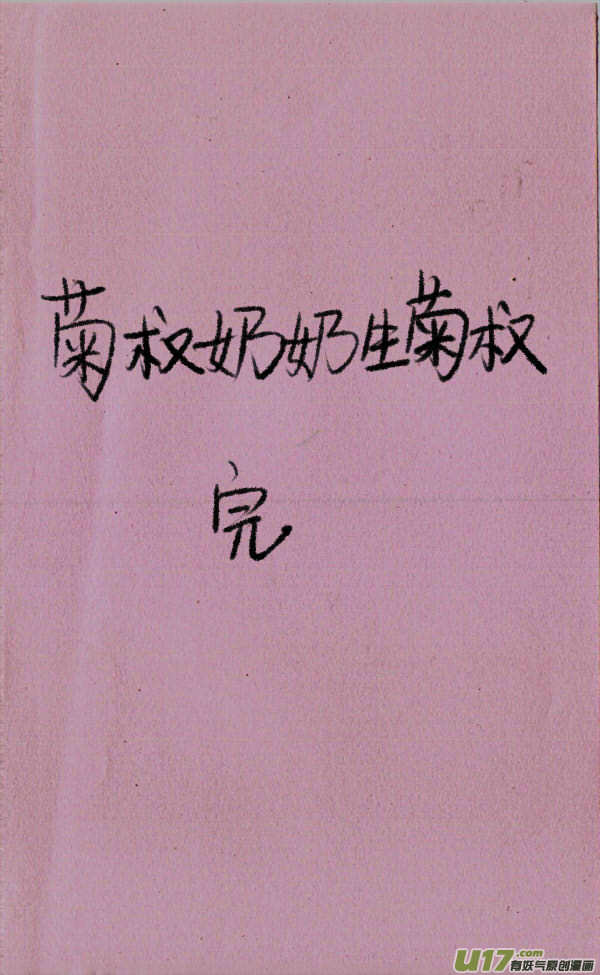 菊叔奶奶生菊叔
完
U17.com
有妖气原创漫画